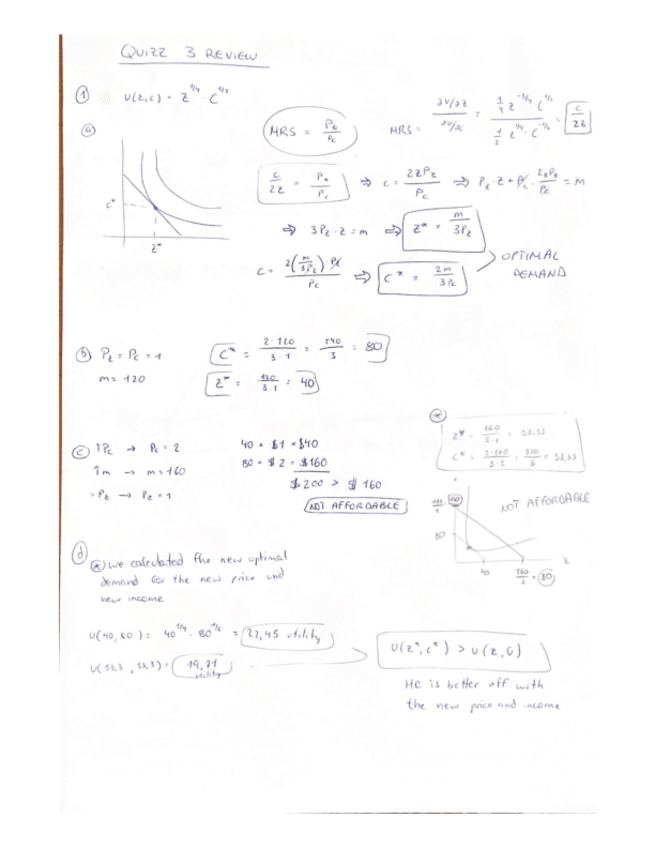 QUIZZ 3 REVIEW
① U(z,c) = z^1/4 · c^1/2
ⓐ MRS = Pz/Pc
MRS = ∂U/∂z / ∂U/∂c = 1/4 z^-3/4 c^1/2 / 1/2 z^1/4 · c^-1/2 = c/2z
c/2z = Pz/Pc ⇒ c = 2zPz/Pc ⇒ Pz · z + Pc · 2zPz/Pc = m
⇒ 3Pz · z = m ⇒ z* = m/3Pz
c = 2(m/3Pz) · Pz / Pc ⇒ c* = 2m/3Pc
OPTIMAL
DEMAND
c*
z*
ⓑ Pz = Pc = 1
m = 120
c* = 2·120/3·1 = 240/3 = 80
z* = 120/3·1 = 40
ⓒ ↑Pc → Pc = 2
↑m → m = 160
= Pz → Pz = 1
40 × $1 = $40
80 × $2 = $160
$200 > $160
NOT AFFORDABLE
⊛
z* = 160/3·1 = 53,33
c* = 2·160/3·2 = 320/6 = 53,33
NOT AFFORDABLE
160/1 = 160
80
40
160/2 = 80
z
ⓓ ⊛ we calculated the new optimal
demand for the new price and
new income
U(40,80) = 40^1/4 · 80^1/2 = 22,45 utility
U(53,3 , 53,3) = 19,71 utility
U(z*, c*) > U(z, c)
He is better off with
the new price and income